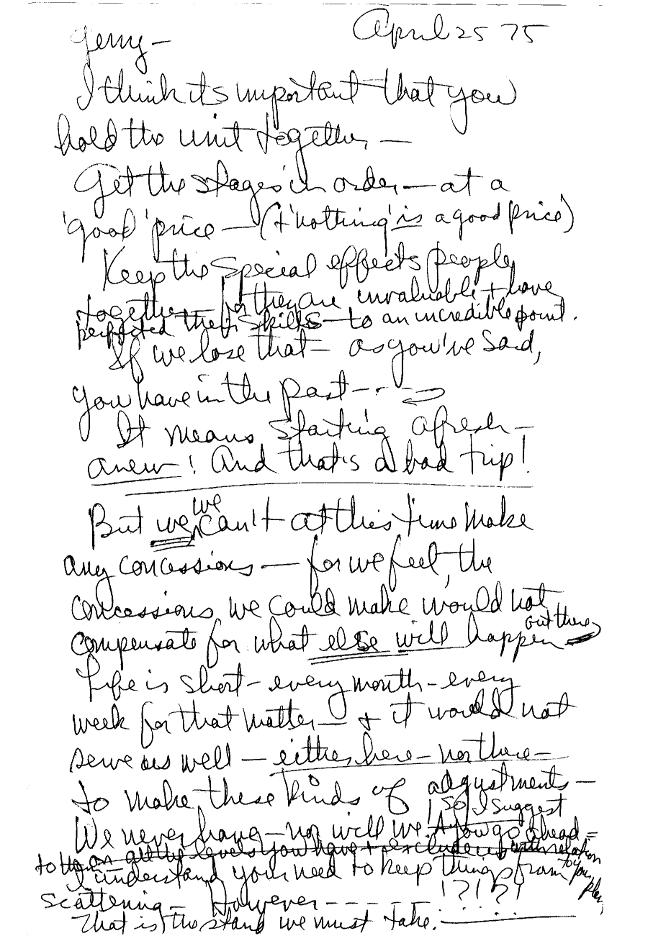 Gerry— April 25 75
I think it's important that you
hold the unit together —
Get the stages in order — at a
'good' price — (& 'nothing' is a good price)
Keep the special effects people
together — for they are invaluable & have
perfected their skills — to an incredible point.
If we lose that — as you've said,
you have in the past - - -
It means starting afresh —
anew! And that's a bad trip!
But we, we can't at this time make
any concessions — for we feel, the
concessions, we could make would not
compensate for what else will happen out there
Life is short — every month — every
week for that matter — & it would not
serve us well — either here — nor there —
to make these kinds of adjustments —
We never have — nor will we! So I suggest
you go ahead =
to all the levels you have +
I understand your need to keep things from
scattering — However - - - - - !?!?!
That is the stand we must take.